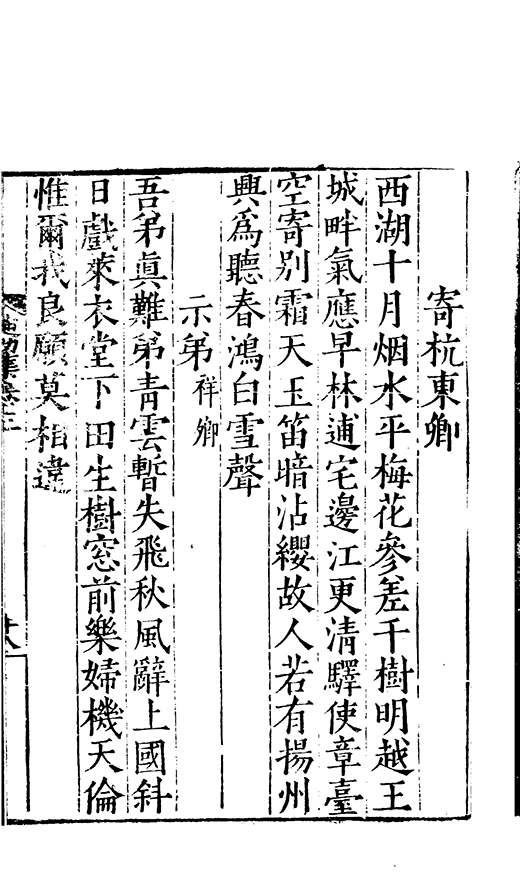 寄杭東卿
西湖十月烟水平梅花參差千樹明越王
城畔氣應早林逋宅邊江更清驛使章臺
空寄別霜天玉笛暗沾纓故人若有揚州
興為聽春鴻白雪聲
示弟祥卿
吾弟真難弟青雲暫失飛秋風辭上國斜
日戲萊衣堂下田生樹窓前樂婦機天倫
惟爾我良願莫相違